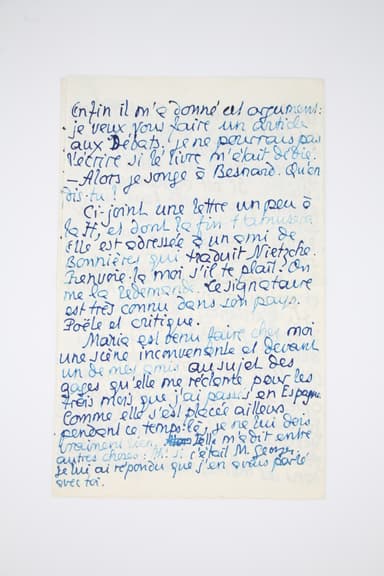 Enfin il m'a donné cet argument:
je veux vous faire un article
aux Débats. je ne pourrais pas
l'écrire si le livre m'était dédié.
— Alors je songe à Besnard. Qu'en
dis-tu?
Ci-joint une lettre un peu à
la H, et dont la fin t'amusera.
Elle est adressée à un ami de
Bonnières qui traduit Nietzche.
Renvoie-la moi, s'il te plaît. On
me la redemande. Le signataire
est très connu dans son pays.
Poëte et critique.
Maria est venu faire chez moi
une scène inconvenante et devant
un de mes amis au sujet des
gages qu'elle me réclante pour les
trois mois que j'ai passés en Espagne
Comme elle s'est placée ailleurs
pendant ce temps-là, je ne lui dois
vraiment rien. Elle m'a dit entre
autres choses: si c'était M. Georges,
je lui ai répondu que j'en avais parlé
avec toi.